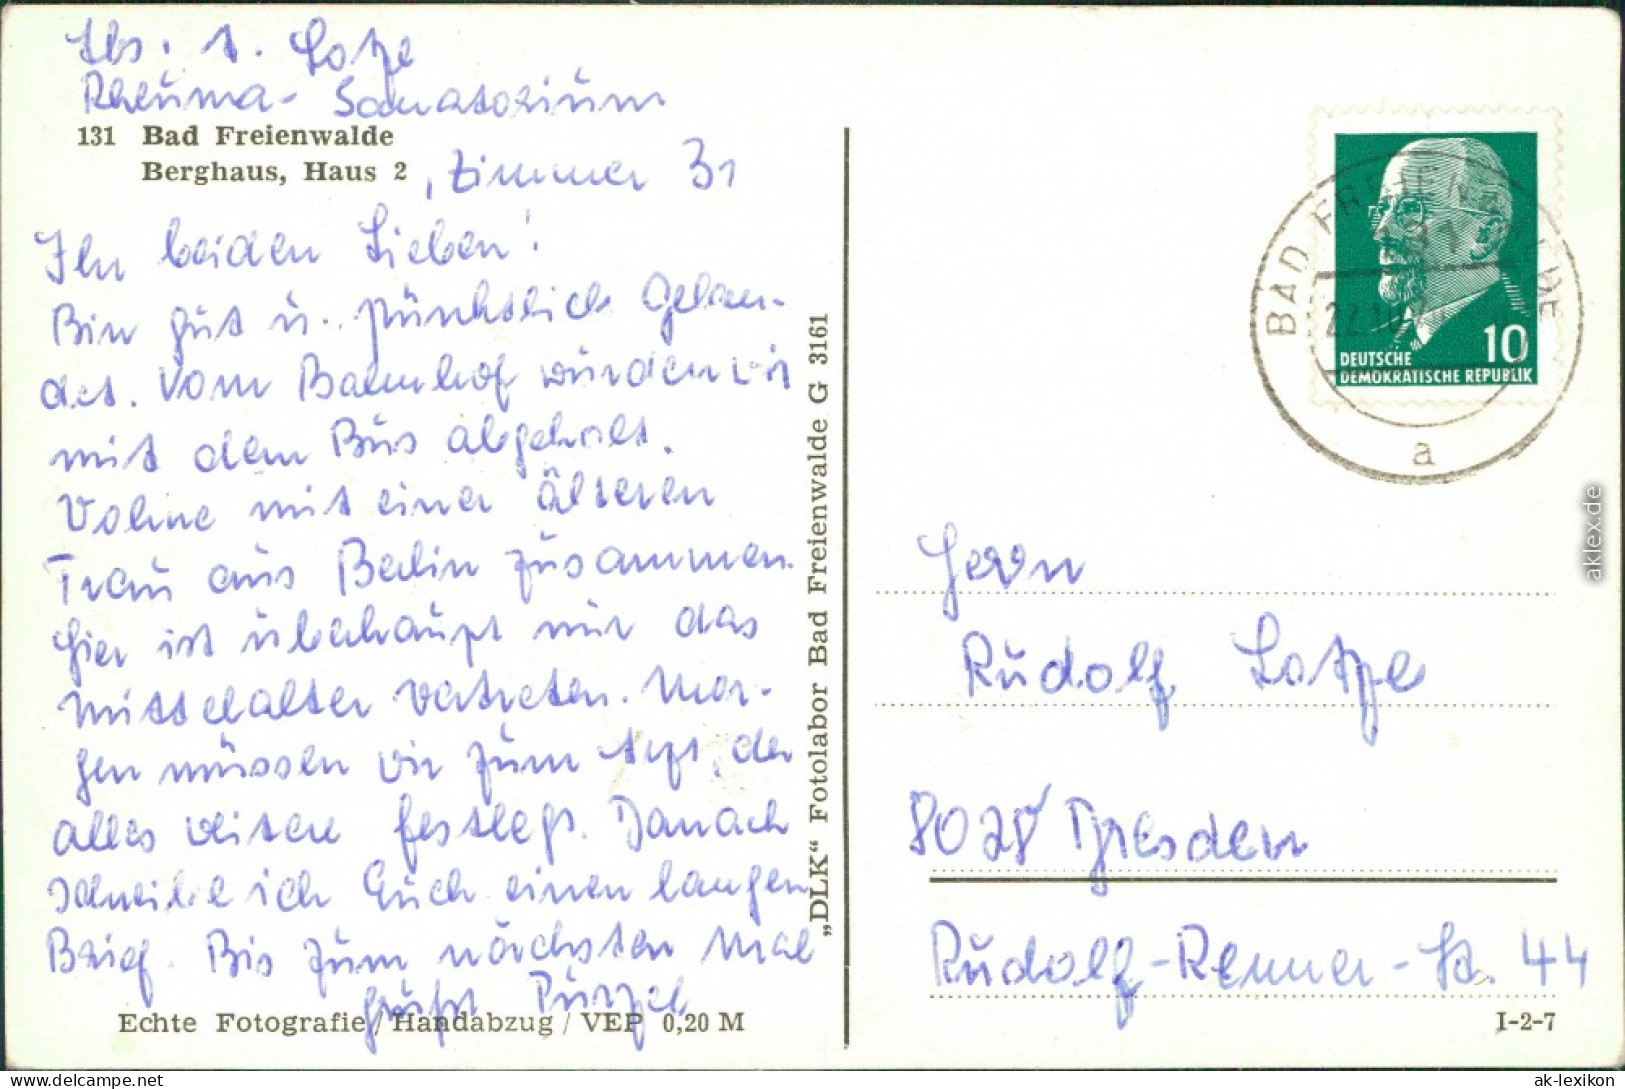 Abs. I. Lotze
Rheuma-Sanatorium
131 Bad Freienwalde
Berghaus, Haus 2, Zimmer 31
Ihr beiden Lieben!
Bin gut u. pünktlich gelan-
det. Vom Bahnhof wurden wir
mit dem Bus abgeholt.
Wohne mit einer älteren
Frau aus Berlin zusammen.
Hier ist überhaupt nur das
Mittelalter vertreten. Mor-
gen müssen wir zum Arzt, der
alles weitere festlegt. Danach
schreibe ich Euch einen langen
Brief. Bis zum nächsten Mal
grüßt Purzel
Echte Fotografie / Handabzug / VEP 0,20 M
„DLK“ Fotolabor Bad Freienwalde G 3161
BAD FREIENWALDE
131
22.10.
a
10
DEUTSCHE
DEMOKRATISCHE REPUBLIK
Herrn
Rudolf Lotze
8028 Dresden
Rudolf-Renner-Str. 44
I-2-7
aklex.de
www.delcampe.net
ak-lexikon